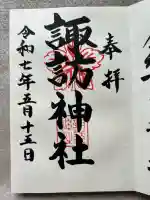 奉拝
諏訪神社
令和七年五月十五日